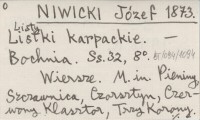 0
NIWICKI Józef 1873.
Listki karpackie. —
Bochnia. Ss. 32, 8°.
Wiersze. M. in. Pieniny,
Szczawnica, Czorsztyn, Czer-
wony Klasztor, Trzy Korony.